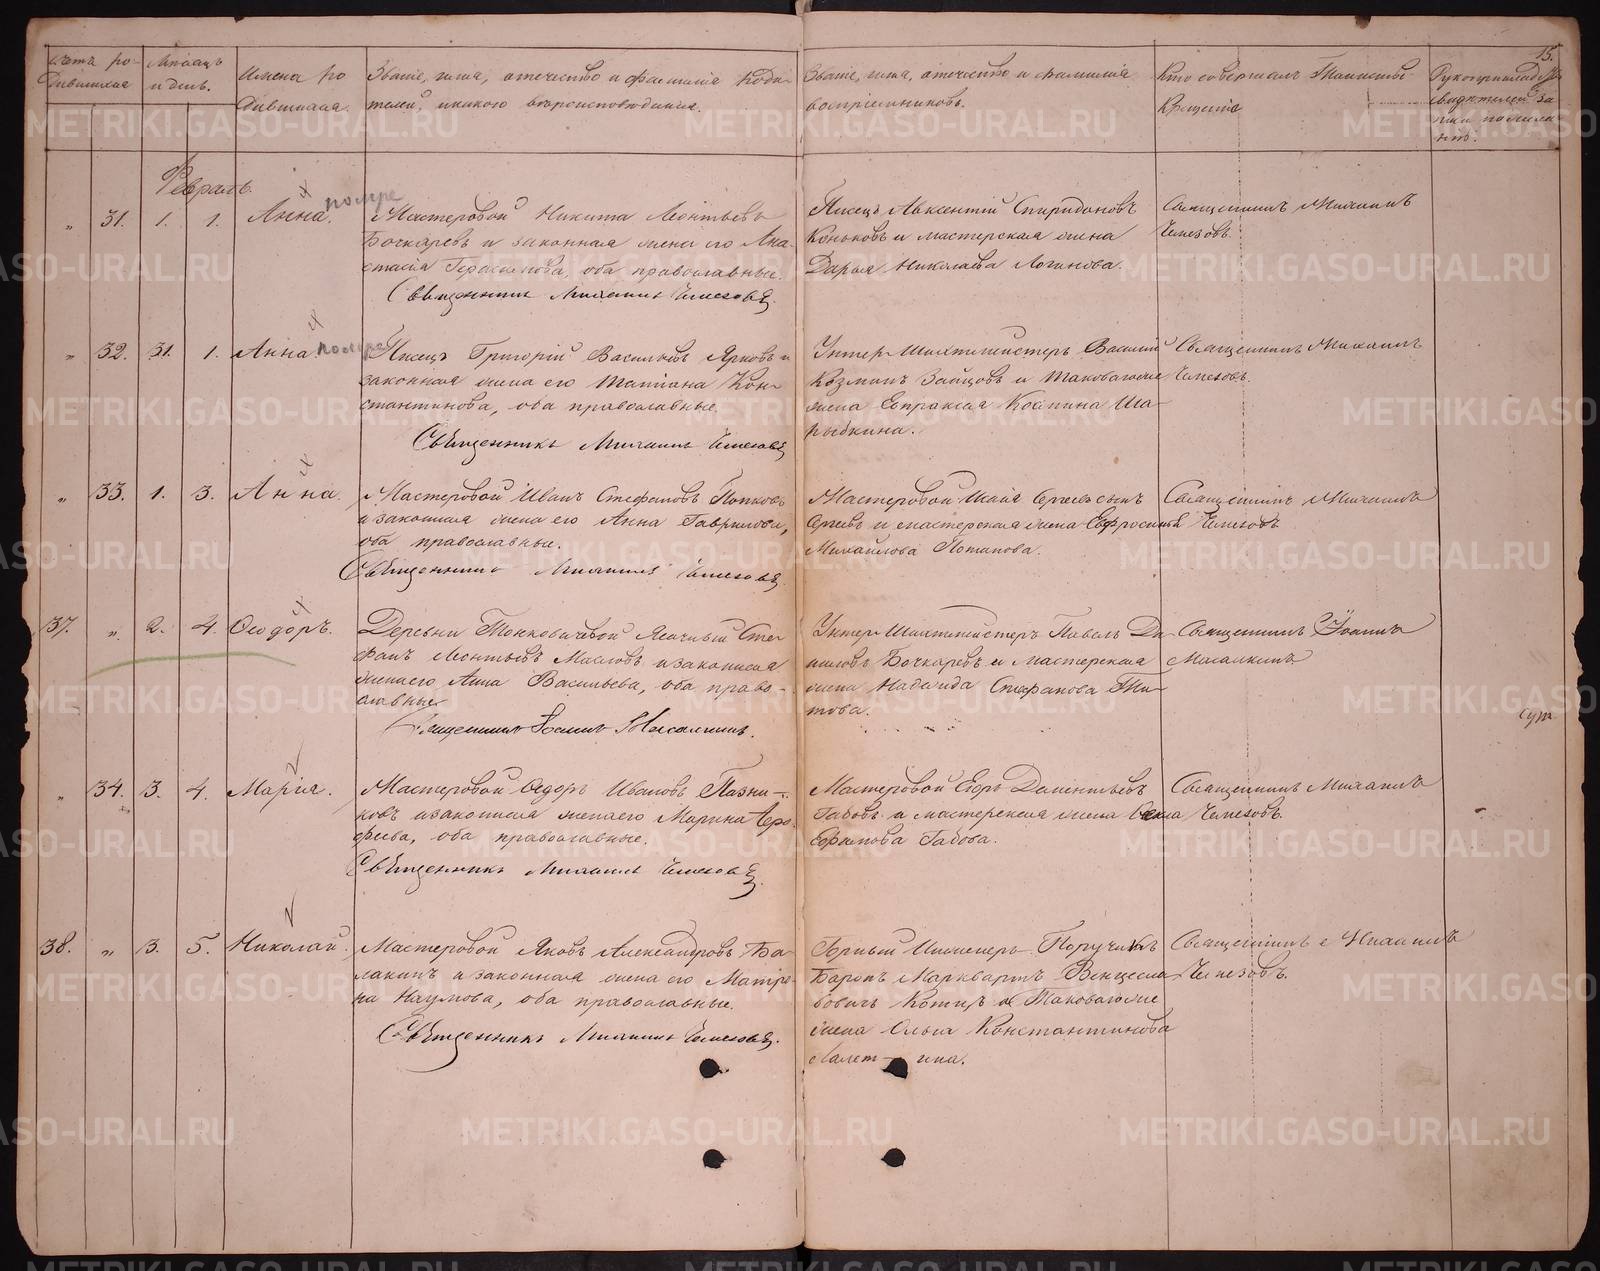 15.
Счетъ ро-
дившихся
Мѣсяцъ
и день.
Имена ро
дившихся.
Званіе, имя, отечество и фамилія роди-
телей, и какого вѣроисповѣданія.
Званіе, имя, отечество и фамилія
воспріемниковъ.
Кто совершалъ Таинство
Крещенія
Рукоприкладство
свидѣтелей за-
писи по жела-
нію.
Февраль.
„ 31. 1. 1. Анна. помре
Мастеровой Никита Леонтьевъ
Бочкаревъ и законная жена его Ана-
стасія Герасимова, оба православные.
Священникъ Михаилъ Чемезовъ
Писецъ Авксентій Спиридоновъ
Коньковъ и мастерская жена
Дарья Николаева Логинова.
Священникъ Михаилъ
Чемезовъ.
„ 32. 31. 1. Анна помре
Писецъ Григорій Васильевъ Ярковъ и
законная жена его Татіана Кон-
стантинова, оба православные.
Священникъ Михаилъ Чемезовъ
Унтер-Шихтмейстеръ Василій
Козминъ Зайцовъ и таковагоже
жена Евпраксія
Священникъ Михаилъ
Чемезовъ.
„ 33. 1. 3. Анна.
Мастеровой Иванъ Стефановъ Попковъ
и законная жена его Анна Гаврилова,
оба православные.
Священникъ Михаилъ Чемезовъ
Мастеровой Исаія Сергѣевъ сынъ
Сергѣевъ и мастерская жена Евфросинія
Михайлова Потапова.
Священникъ Михаилъ
Чемезовъ
37. „ 2. 4. Ѳеодоръ.
Деревни Стe-
фанъ Леонтьевъ Масловъ и законная
жена его Анна Васильева, оба право-
славные
Священникъ Іоаннъ
Унтер-Шихтмейстеръ Павелъ Да-
ниловъ Бочкаревъ и мастерская
жена Надежда Стефанова Ти-
това.
Священникъ Іоаннъ
„ 34. 3. 4. Марія.
Мастеровой Ѳедоръ Ивановъ Пазни-
ковъ и законная жена его Марина Еро-
феева, оба православные.
Священникъ Михаилъ Чемезовъ
Мастеровой Егоръ Дементьевъ
Бабовъ и мастерская жена
Ефимова Бабова.
Священникъ Михаилъ
Чемезовъ.
38. „ 3. 5. Николай.
Мастеровой Яковъ Александровъ Ба-
лакинъ и законная жена его Матре-
на Наумова, оба православные.
Священникъ Михаилъ Чемезовъ.
Горный Инженеръ Поручикъ
Баронъ Марквартъ Венцесла-
вовичъ Котцъ и таковагоже
жена Ольга Константинова
Священникъ Михаилъ
Чемезовъ.
METRIKI.GASO-URAL.RU